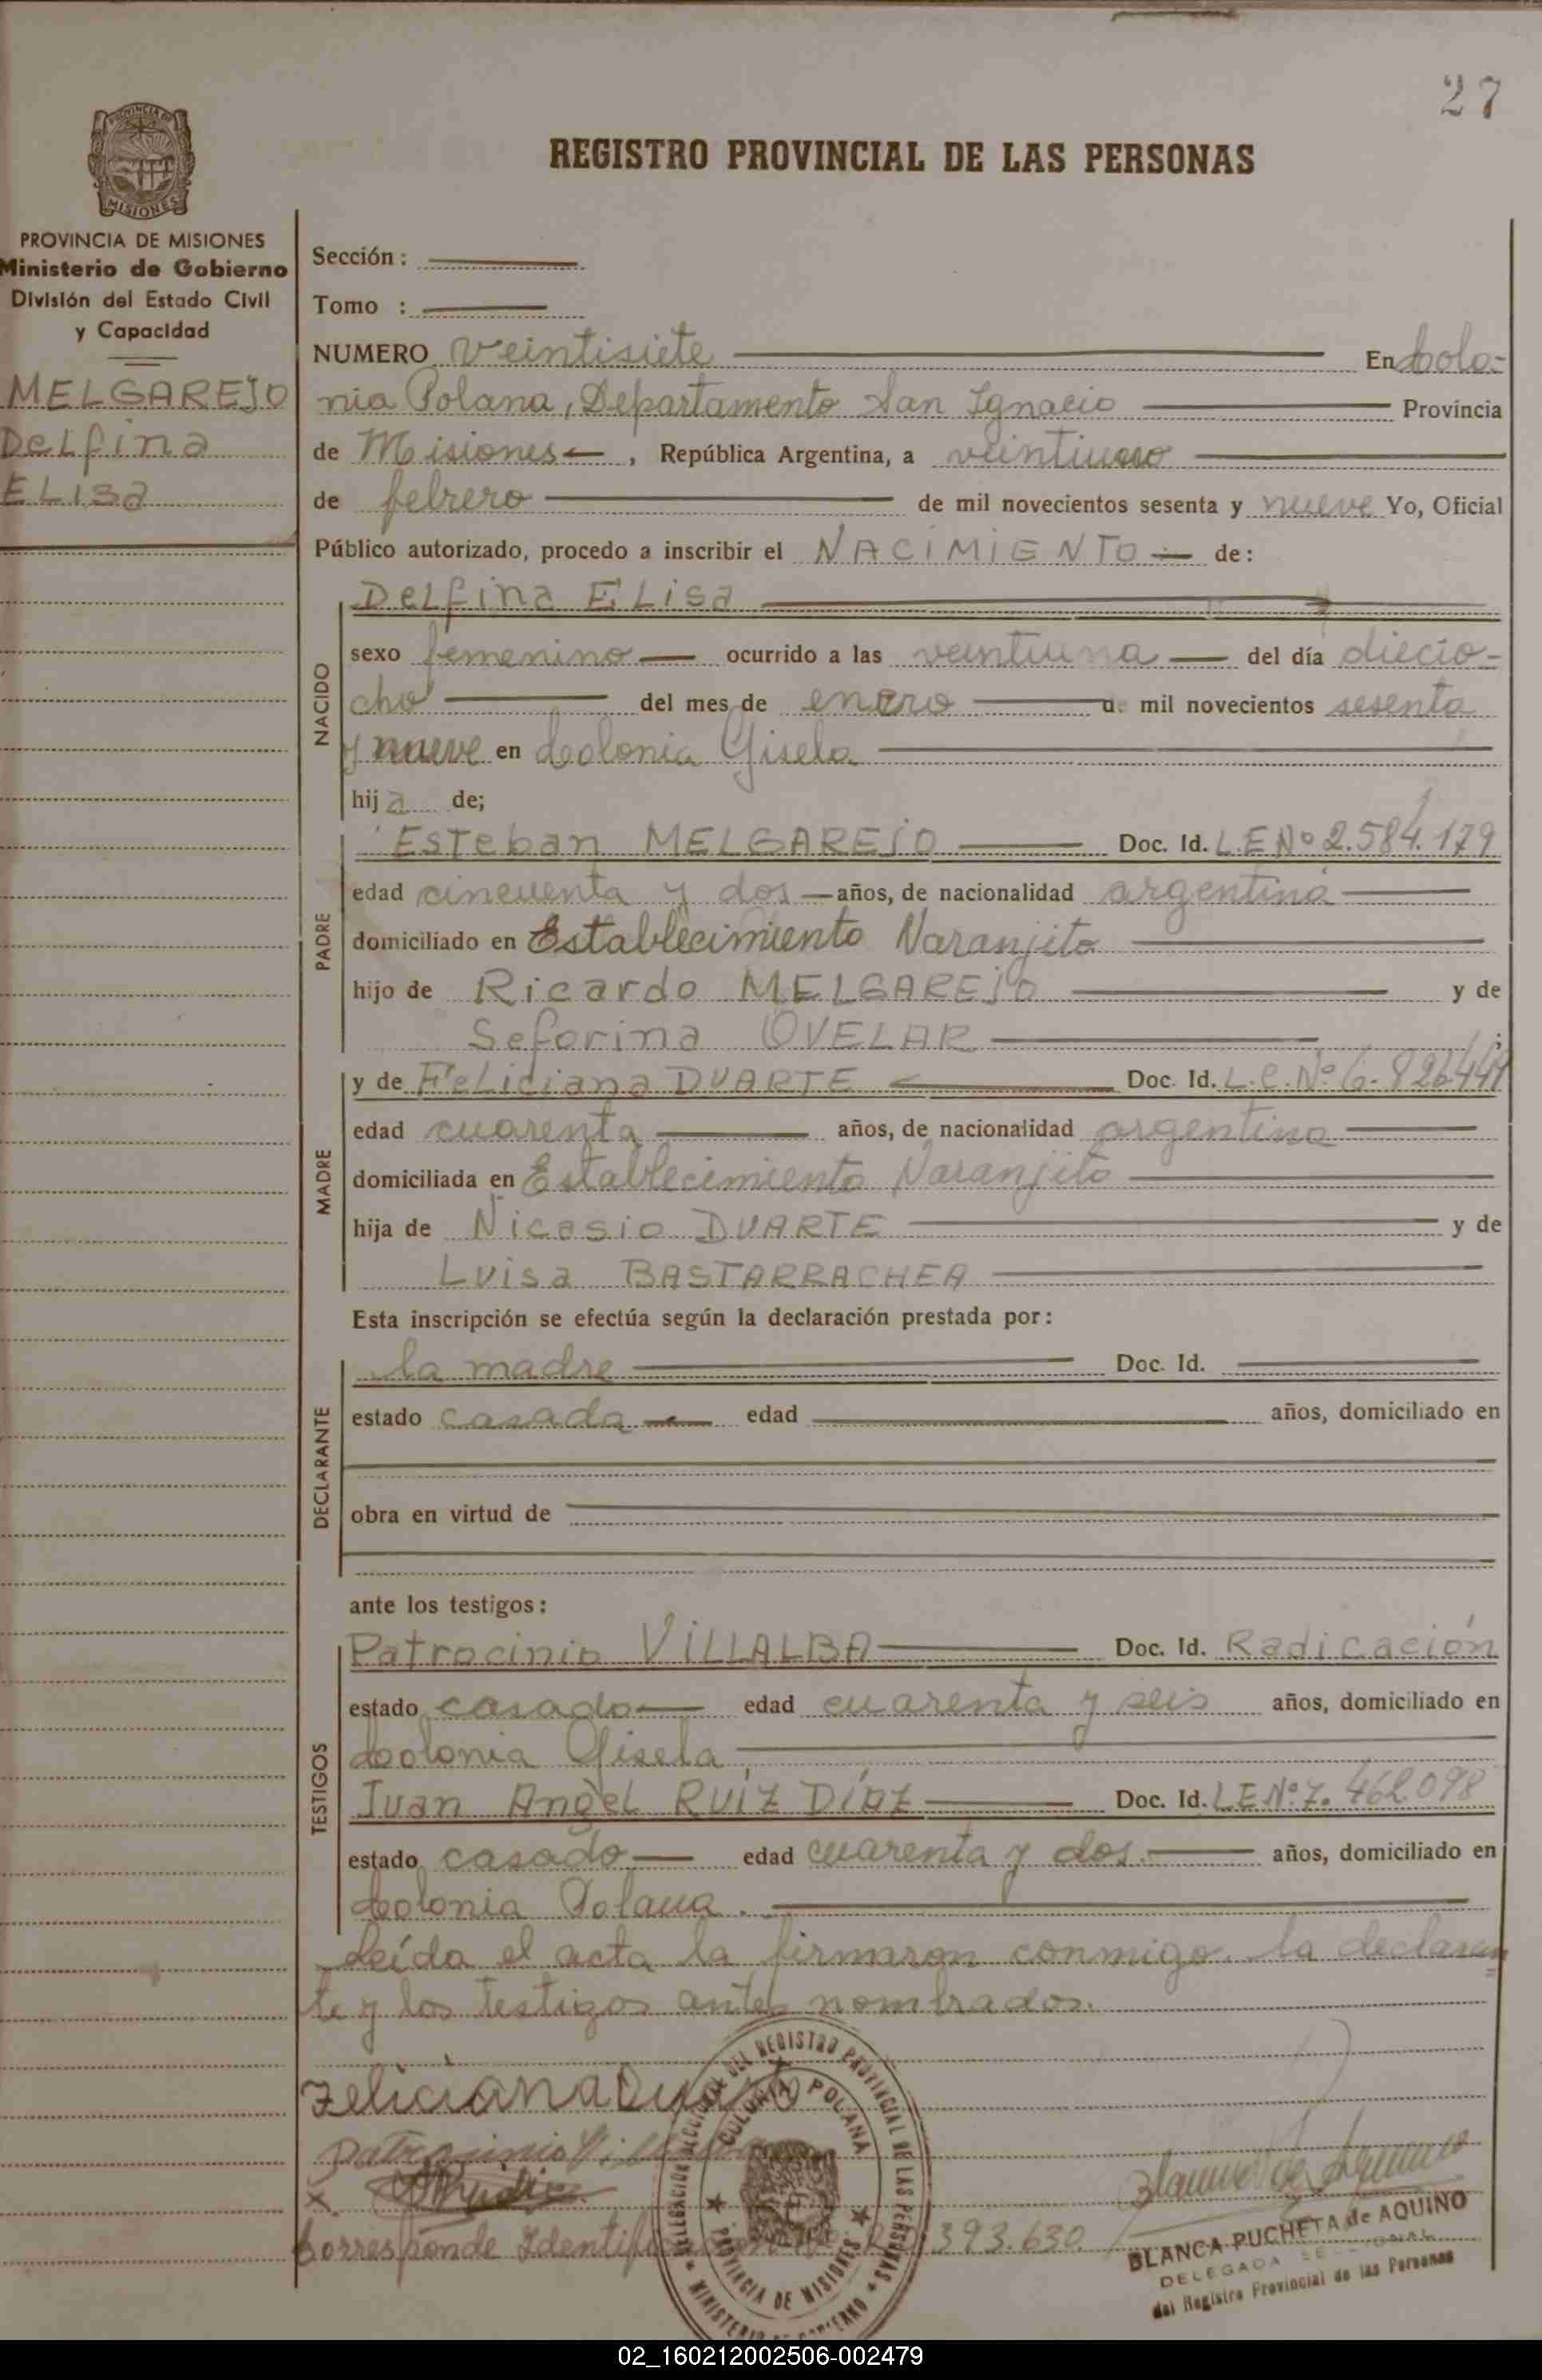 27
PROVINCIA DE
MISIONES
REGISTRO PROVINCIAL DE LAS PERSONAS
PROVINCIA DE MISIONES
Ministerio de Gobierno
División del Estado Civil
y Capacidad
MELGAREJO
Delfina
ELisa
Sección :
Tomo :
NUMERO veintisiete En Colo-
nia Polana, Departamento San Ignacio Provincia
de Misiones, República Argentina, a veintiuno
de febrero de mil novecientos sesenta y nueve Yo, Oficial
Público autorizado, procedo a inscribir el NACIMIENTO de:
NACIDO
Delfina ELisa
sexo femenino ocurrido a las veintiuna del día diecio-
cho del mes de enero d. mil novecientos sesenta
y nueve en Colonia Gisela
hija de;
PADRE
Esteban MELGAREJO Doc. Id. L.E.Nº 2.584.179
edad cincuenta y dos años, de nacionalidad argentina
domiciliado en Establecimiento Naranjito
hijo de Ricardo MELGAREJO y de
Seforina OVELAR ;
MADRE
y de Feliciana DUARTE Doc. Id. L.C.Nº 6.826.441
edad cuarenta años, de nacionalidad argentina
domiciliada en Establecimiento Naranjito
hija de Nicasio DUARTE y de
Luisa BASTARRACHEA
Esta inscripción se efectúa según la declaración prestada por:
DECLARANTE
la madre Doc. Id.
estado casada edad años, domiciliado en
obra en virtud de
ante los testigos:
TESTIGOS
Patrocinio VILLALBA Doc. Id. Radicación
estado casado edad cuarenta y seis años, domiciliado en
Colonia Gisela
Juan Angel RUIZ DÍAZ Doc. Id. L.E.Nº 7.462.098
estado casado edad cuarenta y dos años, domiciliado en
Colonia Polana.
Leída el acta la firmaron conmigo, la declaran
te y los testigos antes nombrados.
Feliciana Duarte
Patrocinio Villalba
x
Corresponde 393.630
DELEGACION SECCIONAL DEL REGISTRO PROVINCIAL DE LAS PERSONAS
COLONIA POLANA
PROVINCIA DE MISIONES
MINISTERIO DE GOBIERNO
BLANCA PUCHETA de AQUINO
DELEGADA SECCIONAL
del Registro Provincial de las Personas
02_160212002506-002479